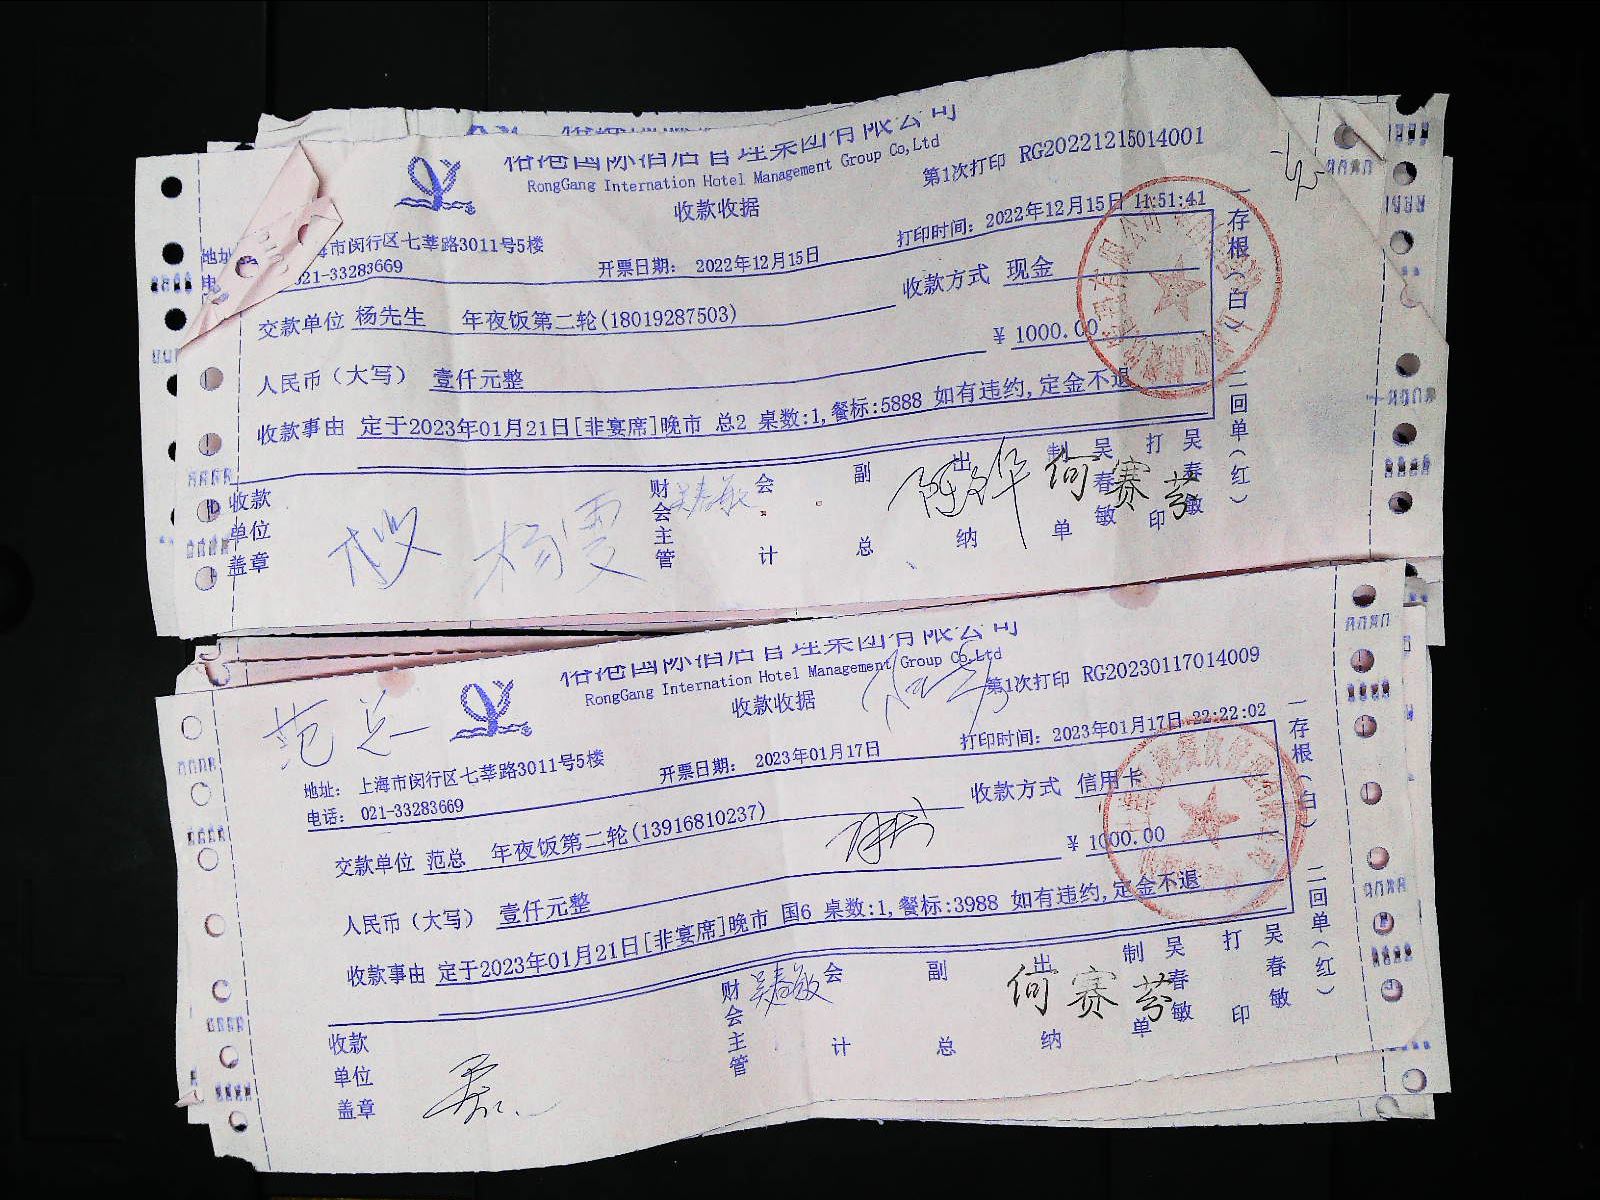 俗港国际酒店管理集团有限公司
RongGang Internation Hotel Management Group Co,Ltd
收款收据
第1次打印 RG20221215014001
地址 上海市闵行区七莘路3011号5楼
电 021-33283669
开票日期: 2022年12月15日
打印时间: 2022年12月15日 11:51:41
交款单位 杨先生 年夜饭第二轮(18019287503)
收款方式 现金
人民币(大写) 壹仟元整
¥ 1000.00
收款事由 定于2023年01月21日[非宴席]晚市 总2 桌数:1,餐标:5888 如有违约,定金不退
收款单位盖章
财会主管 吴春敏
会计
副总
出纳 何赛芬
制单 吴春敏
打印 吴春敏
一存根(白) 二回单(红)
俗港国际酒店管理集团有限公司
RongGang Internation Hotel Management Group Co,Ltd
收款收据
第1次打印 RG20230117014009
范总
地址: 上海市闵行区七莘路3011号5楼
电话: 021-33283669
开票日期: 2023年01月17日
打印时间: 2023年01月17日 22:22:02
交款单位 范总 年夜饭第二轮(13916810237)
收款方式 信用卡
人民币(大写) 壹仟元整
¥ 1000.00
收款事由 定于2023年01月21日[非宴席]晚市 国6 桌数:1,餐标:3988 如有违约,定金不退
收款单位盖章
财会主管 吴春敏
会计
副总
出纳 何赛芬
制单 吴春敏
打印 吴春敏
一存根(白) 二回单(红)